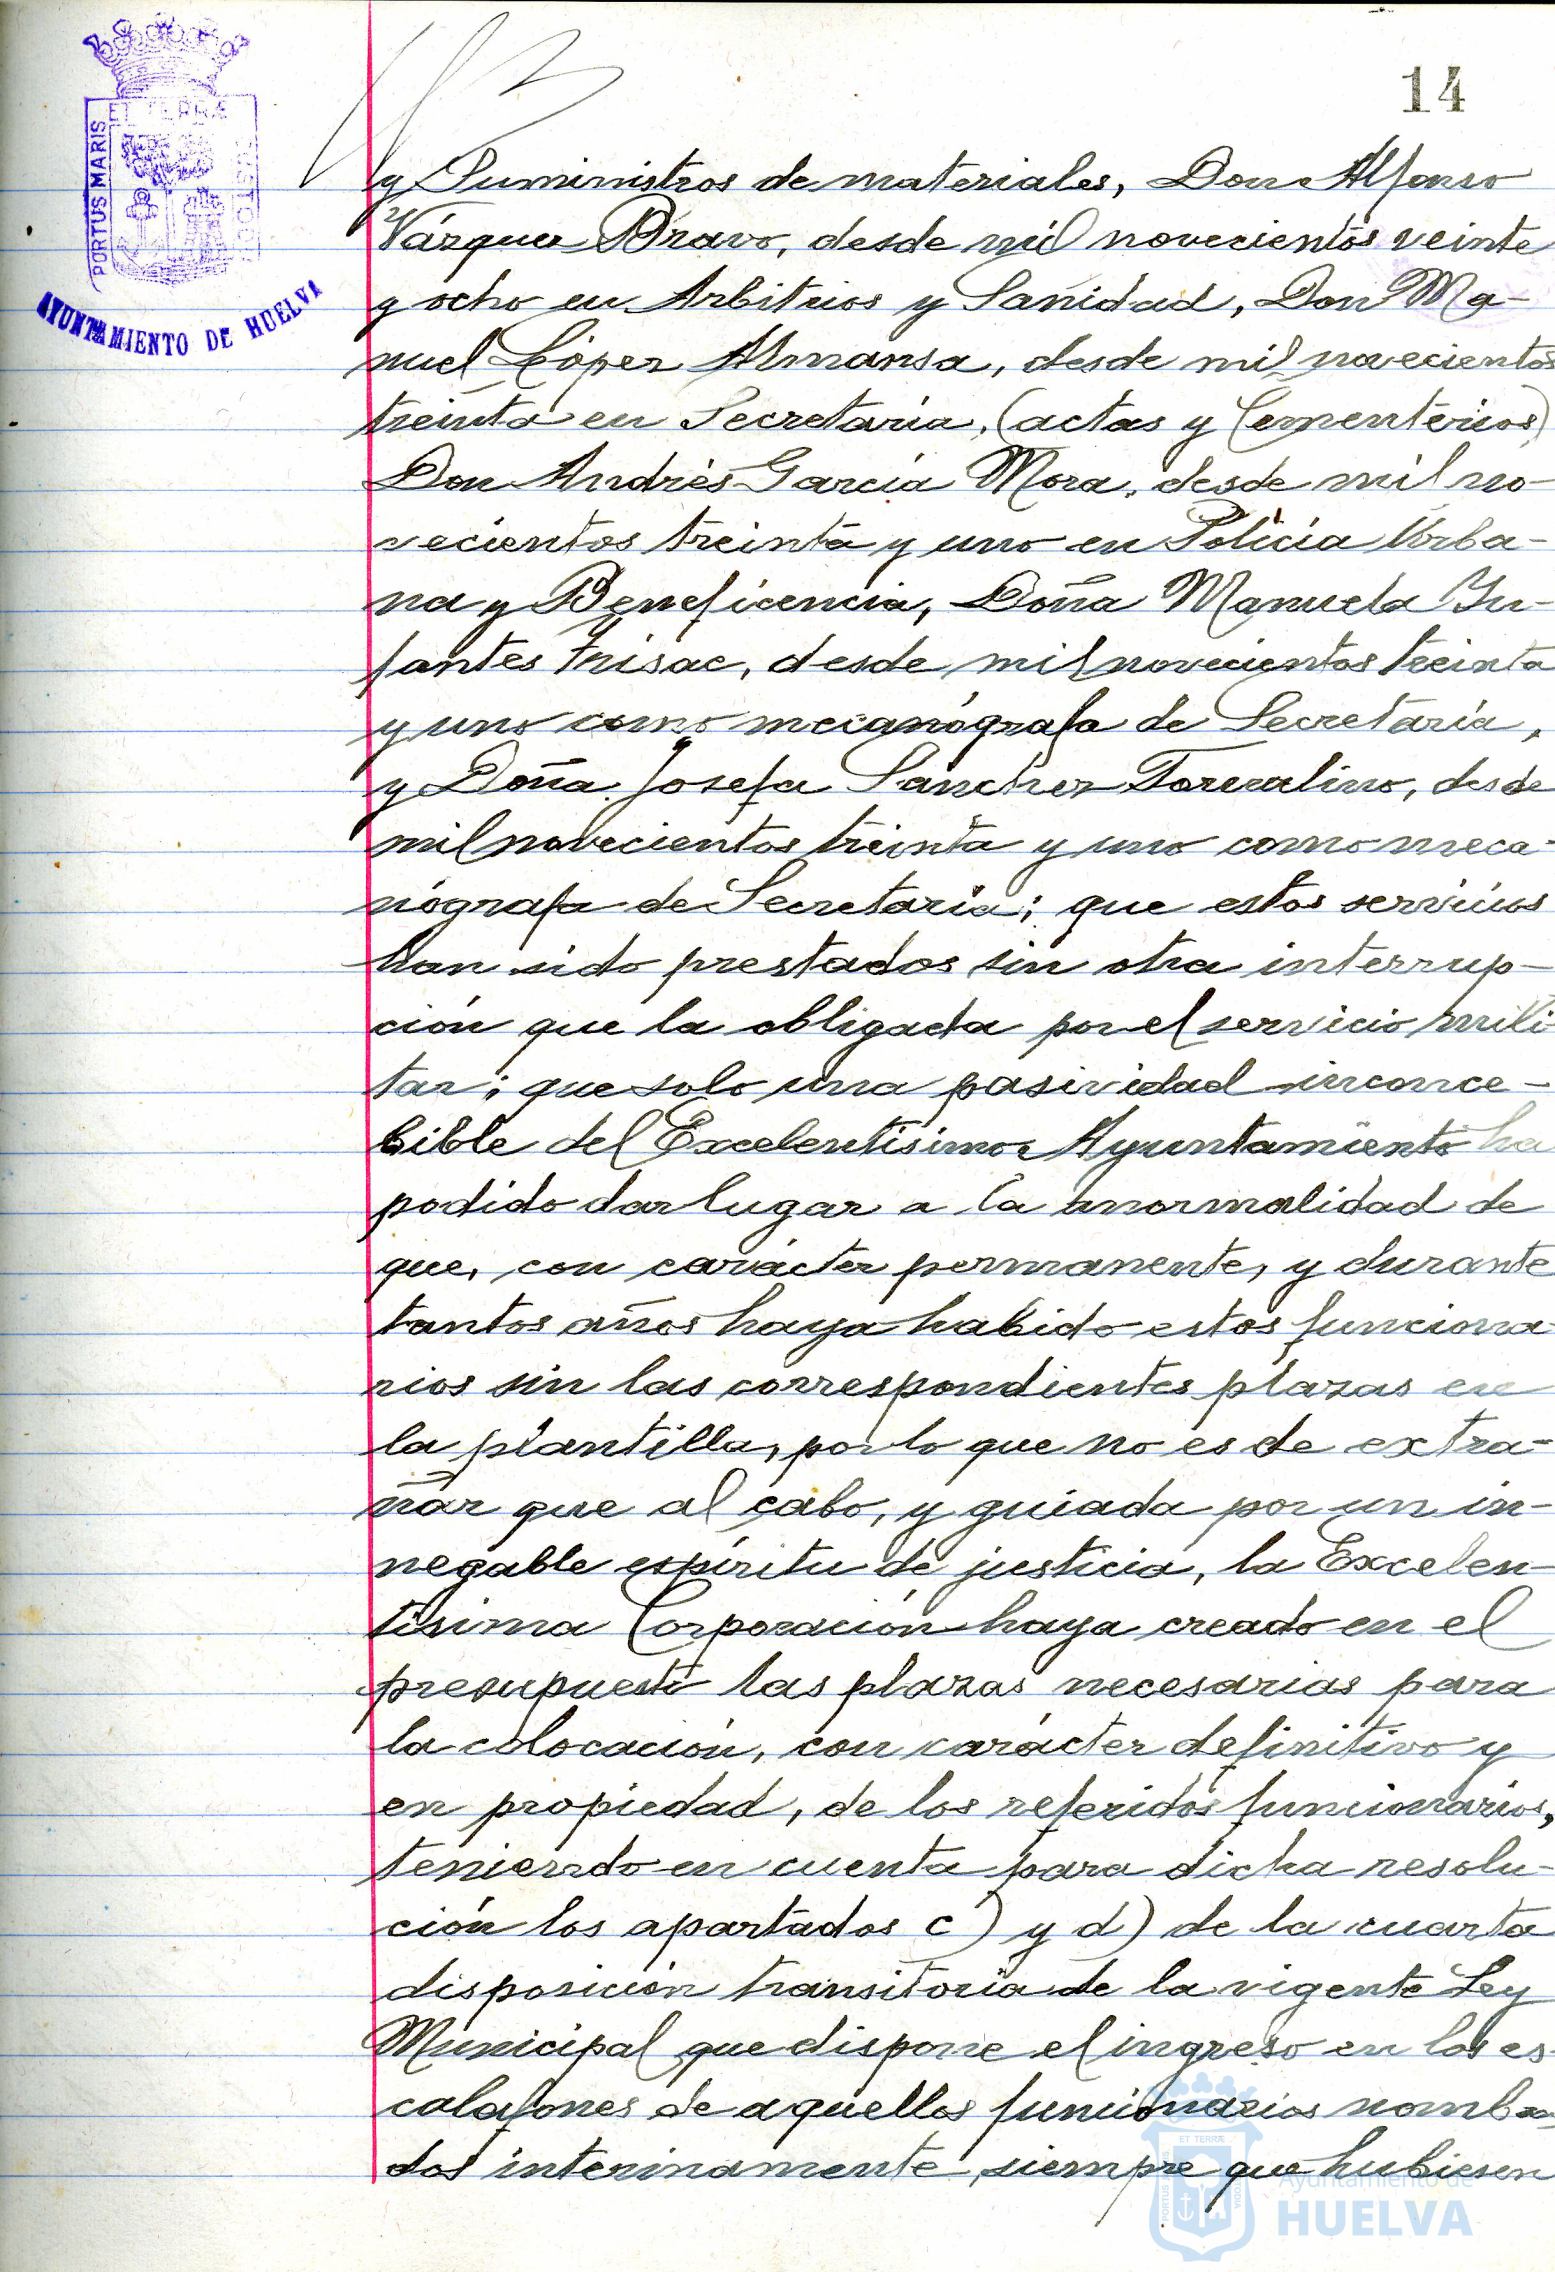 14
PORTUS MARIS
ET TERRÆ
CUSTODIA
AYUNTAMIENTO DE HUELVA
y Suministros de materiales, Don Alfonso
Vázquez Bravo, desde mil novecientos veinte
y ocho en Arbitrios y Sanidad, Don Ma-
nuel López Almansa, desde mil novecientos
treinta en Secretaría, (actas y Cementerios)
Don Andrés García Mora, desde mil no-
vecientos treinta y uno en Policía Urba-
na y Beneficencia, Doña Manuela In-
fantes , desde mil novecientos treinta
y uno como mecanógrafa de Secretaría,
y Doña Josefa Sánchez , desde
mil novecientos treinta y uno como meca-
nógrafa de Secretaría; que estos servicios
han sido prestados sin otra interrup-
ción que la obligada por el servicio mili
tar; que solo una pasividad inconce-
bible del Excelentísimo Ayuntamiento ha
podido dar lugar a la anormalidad de
que, con carácter permanente, y durante
tantos años haya habido estos funciona
rios sin las correspondientes plazas en
la plantilla, por lo que no es de extra-
ñar que al cabo, y guiada por un in-
negable espíritu de justicia, la Excelen-
tísima Corporación haya creado en el
presupuesto las plazas necesarias para
la colocación, con carácter definitivo y
en propiedad, de los referidos funcionarios,
teniendo en cuenta para dicha resolu-
ción los apartados c) y d) de la cuarta
disposición transitoria de la vigente Ley
Municipal que dispone el ingreso en los es
calafones de aquellos funcionarios nombra
dos interinamente, siempre que hubiesen
Ayuntamiento de
HUELVA